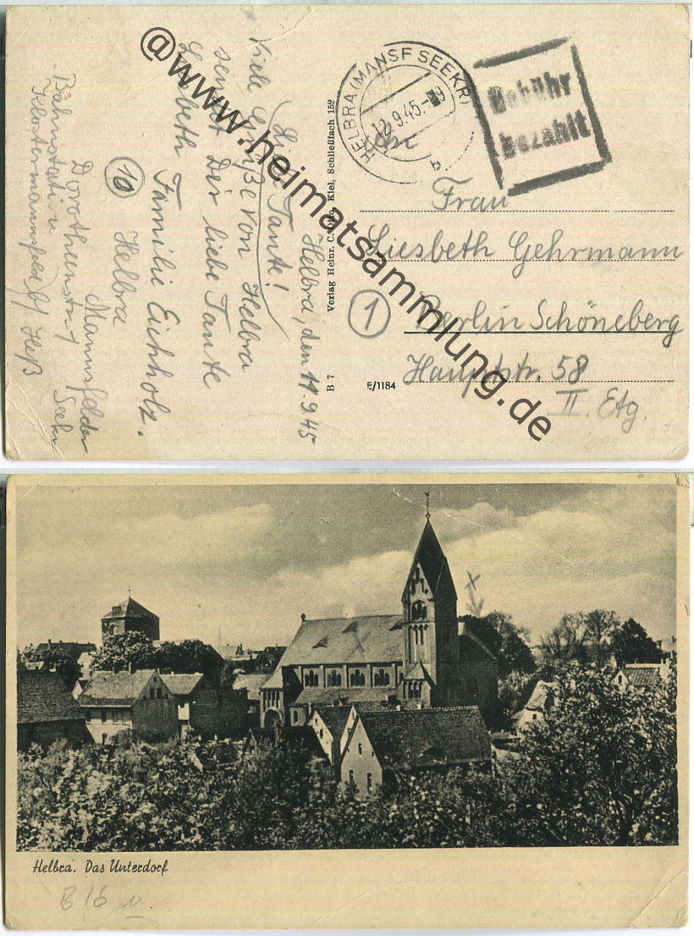 Helbra, den 11.9.45
Liebe Tante!
Viele Grüße von Helbra
sendet Dir liebe Tante
Liesbeth Familie Eichholz.
10
Helbra
Mannsfelder Seekr
Dorotheenstr. 1
Bahnstation
Klostermannsfeld
Verlag Heinr. C. Kiel, Schließfach 152
B 7
E/1184
HELBRA (MANSF SEEKR)
12.9.45.-9
Gebühr
bezahlt
Frau
Liesbeth Gehrmann
1
Berlin Schöneberg
Hauptstr. 58
II. Etg.
@www.heimatsammlung.de
Helbra. Das Unterdorf